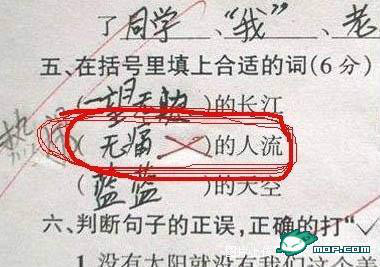 了同学、“我”、老
五、在括号里填上合适的词(6分)
(一望无边)的长江
热闹
(无痛)的人流
(蓝蓝)的天空
六、判断句子的正误,正确的打“✓
1.没有太阳就没有我们这个美
MOP.com